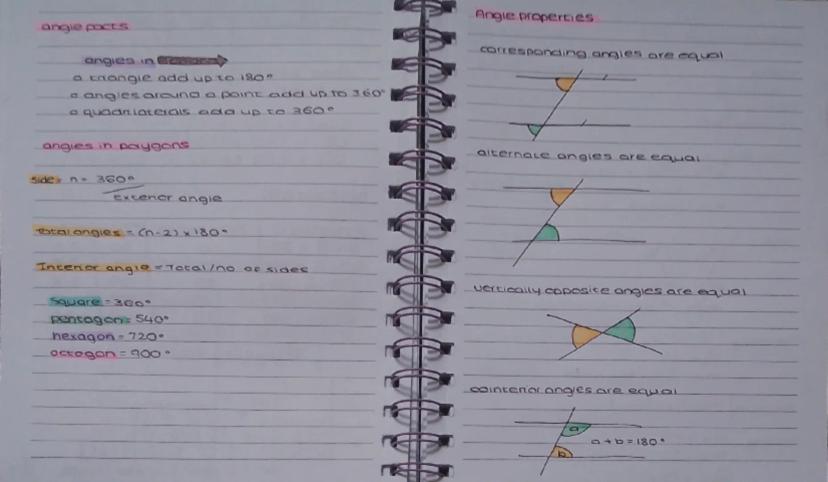 angle facts
angles in
a triangle add up to 180°
angles around a point add up to 360°
quadrilaterals add up to 360°
angles in polygons
side, n = 360°
exterior angle
Total angles = (n-2) x 180°
Interior angle = Total/no of sides
Square = 360°
pentagon = 540°
hexagon = 720°
octagon = 900°
Angle properties
corresponding angles are equal
alternate angles are equal
vertically opposite angles are equal
cointerior angles are equal
a
a + b = 180°
b